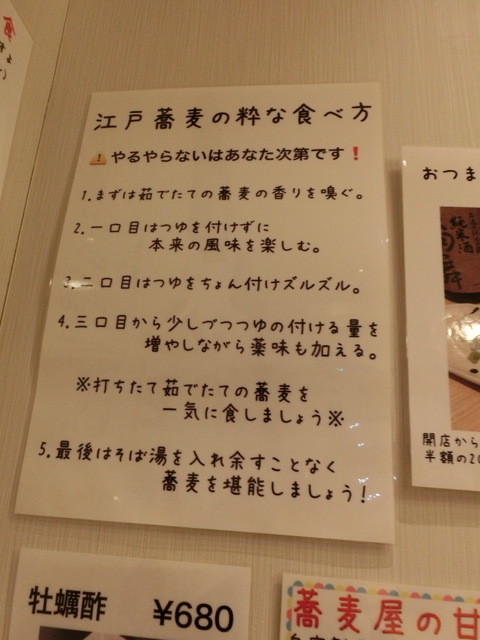 江戸蕎麦の粋な食べ方
⚠やるやらないはあなた次第です❗
1.まずは茹でたての蕎麦の香りを嗅ぐ。
2.一口目はつゆを付けずに
本来の風味を楽しむ。
3.二口目はつゆをちょん付けズルズル。
4.三口目から少しづつつゆの付ける量を
増やしながら薬味も加える。
※打ちたて茹でたての蕎麦を
一気に食しましょう※
5.最後はそば湯を入れ余すことなく
蕎麦を堪能しましょう!
おつま
純米酒
開店から
半額の20
牡蠣酢 ¥680
蕎麦屋の甘